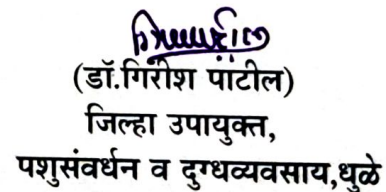 (डॉ.गिरीश पाटील)
जिल्हा उपायुक्त,
पशुसंवर्धन व दुग्धव्यवसाय,धुळे